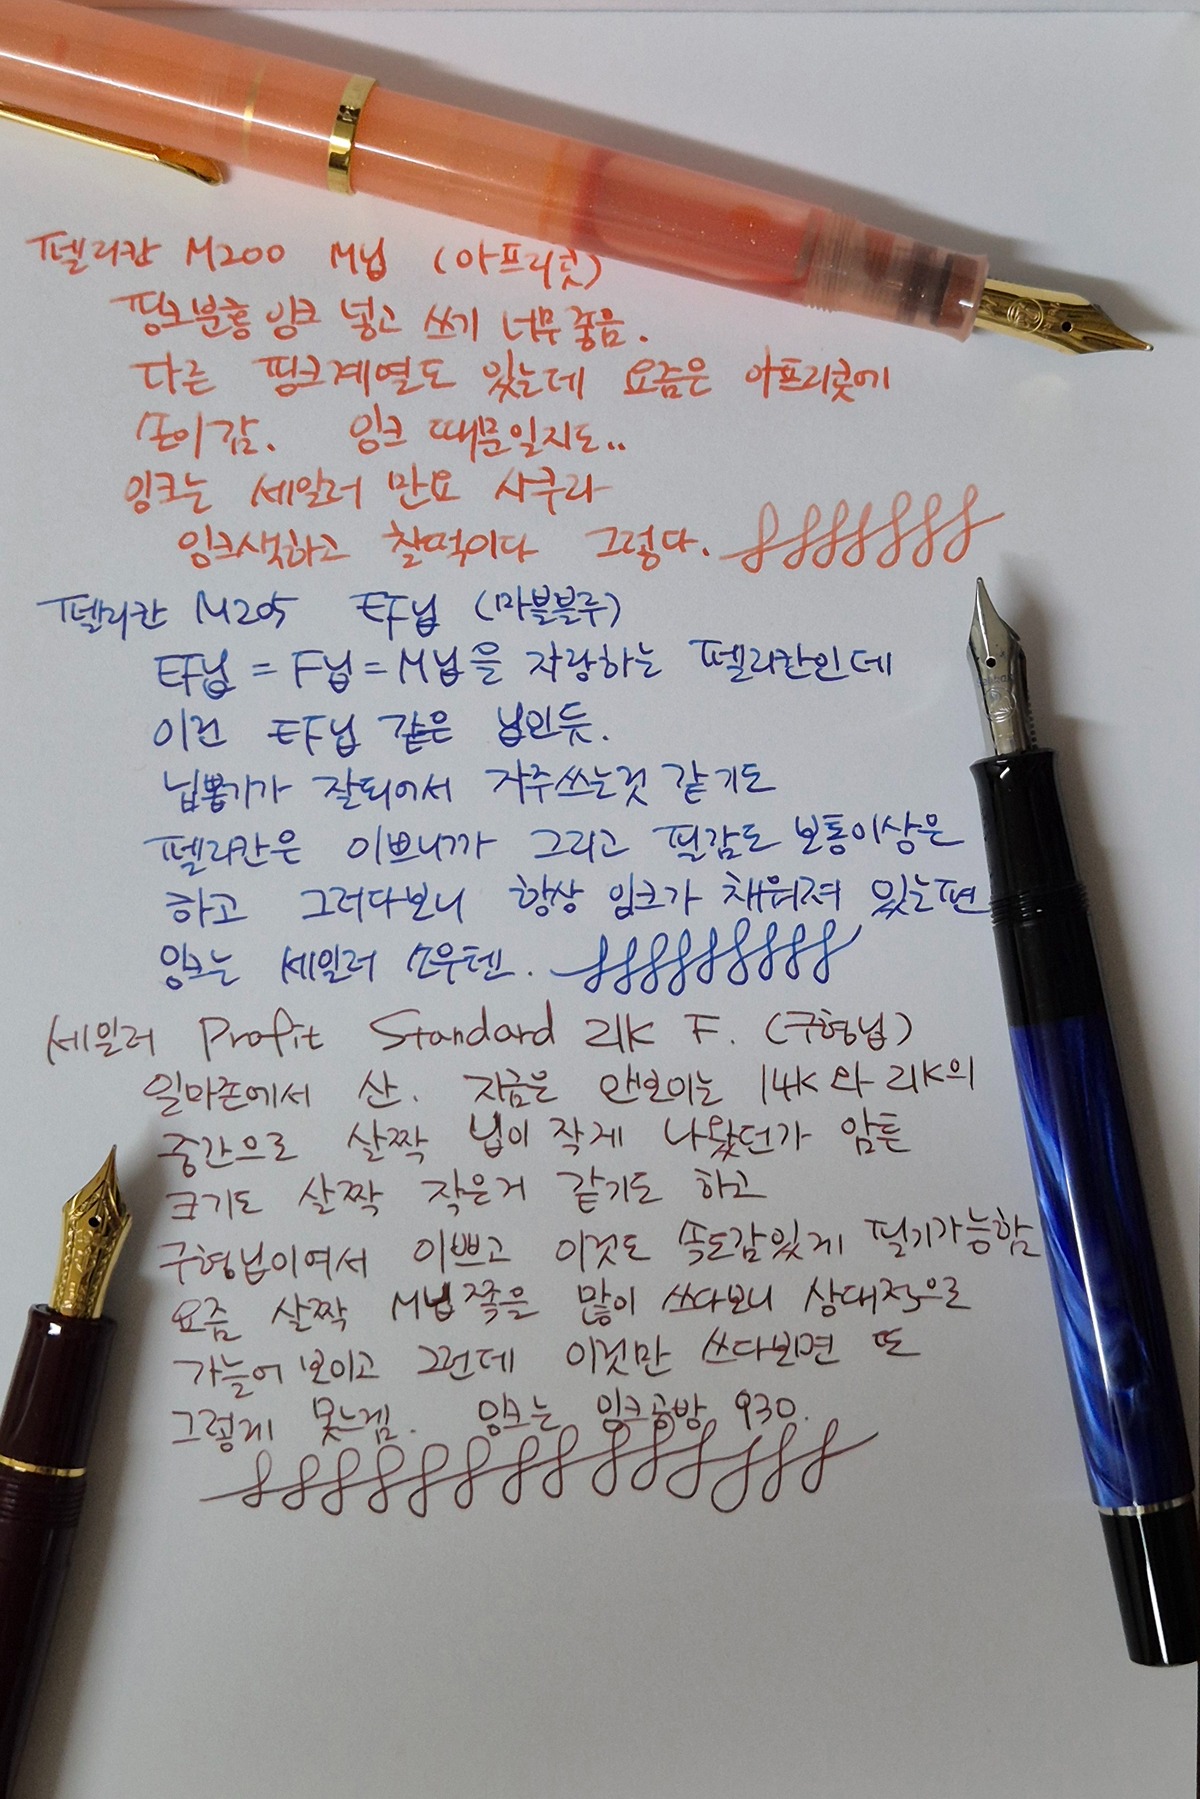 펠리칸 M200 M닙 (아프리콧)
핑크분홍 잉크 넣고 쓰기 너무 좋음.
다른 핑크계열도 있는데 요즘은 아프리콧에
손이 감. 잉크 때문일지도..
잉크는 세일러 만요 사쿠라
잉크색하고 찰떡이다 그렇다.
펠리칸 M205 EF닙 (마블블루)
EF닙 = F닙 = M닙을 자랑하는 펠리칸인데
이건 EF닙 같은 닙인듯.
닙뽑기가 잘되어서 자주쓰는것 같기도
펠리칸은 이쁘니까 그리고 필감도 보통이상은
하고 그러다보니 항상 잉크가 채워져 있는편
잉크는 세일러 소우텐.
세일러 Profit Standard 21K F. (구형닙)
일마존에서 산. 지금은 안보이는 14K와 21K의
중간으로 살짝 닙이 작게 나왔던가 암튼
크기도 살짝 작은거 같기도 하고
구형닙이여서 이쁘고 이것도 속도감있게 필기가능함
요즘 살짝 M닙쪽을 많이 쓰다보니 상대적으로
가늘어 보이고 그런데 이것만 쓰다보면 또
그렇게 못느낌. 잉크는 잉크공방 930.